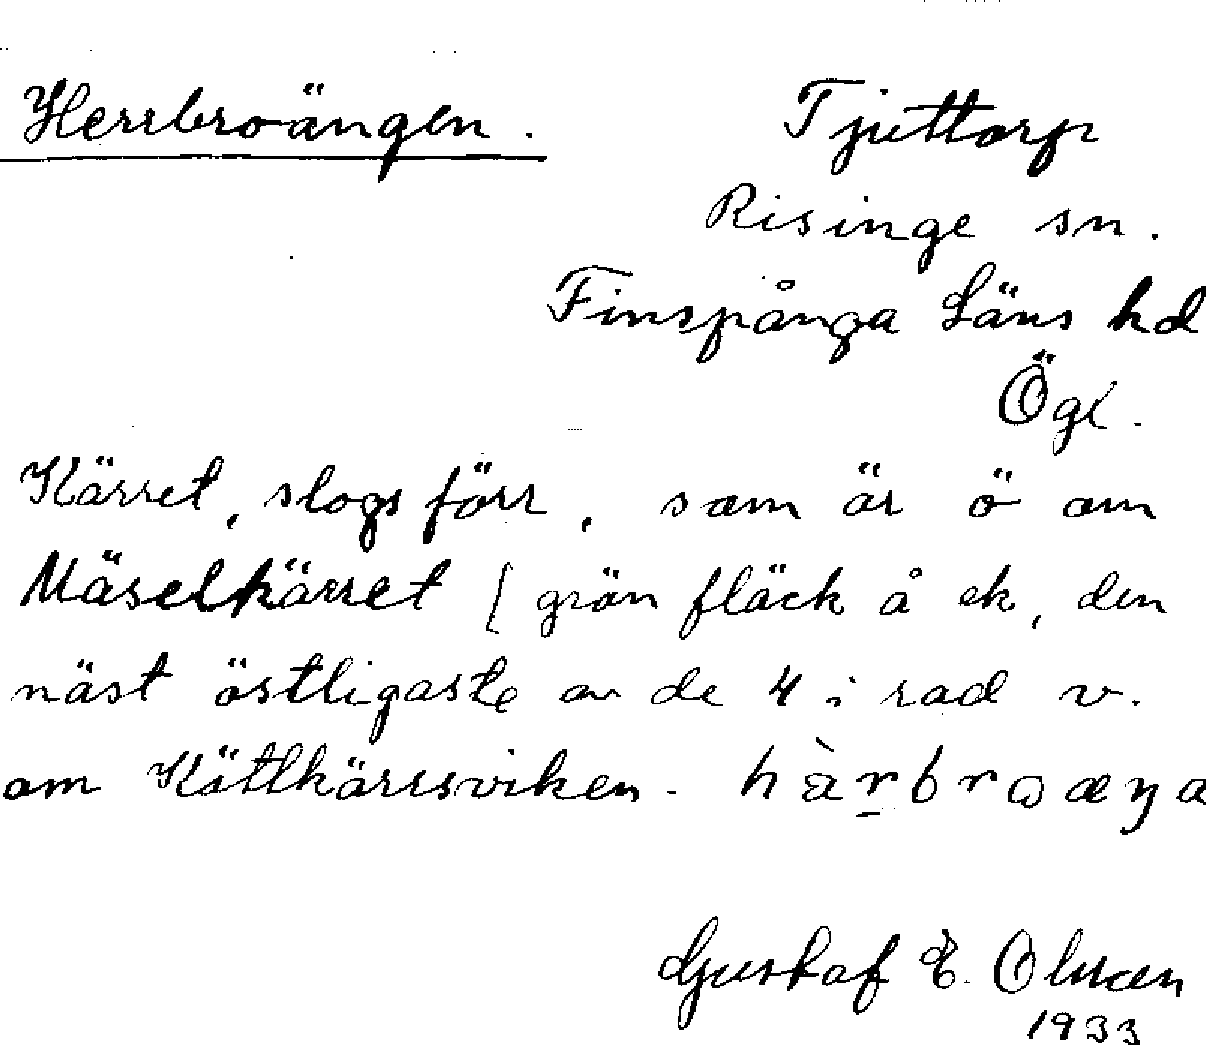 Herrbroängen.
Tjuttorp
Risinge sn.
Finspånga Läns hd
Ögl.
Kärret, slogs förr, som är ö om
Mäselkärret [grön fläck å ek, den
näst östligaste av de 4 i rad v.
om Köttkärrsviken.
Gustaf E. Olsson
1933